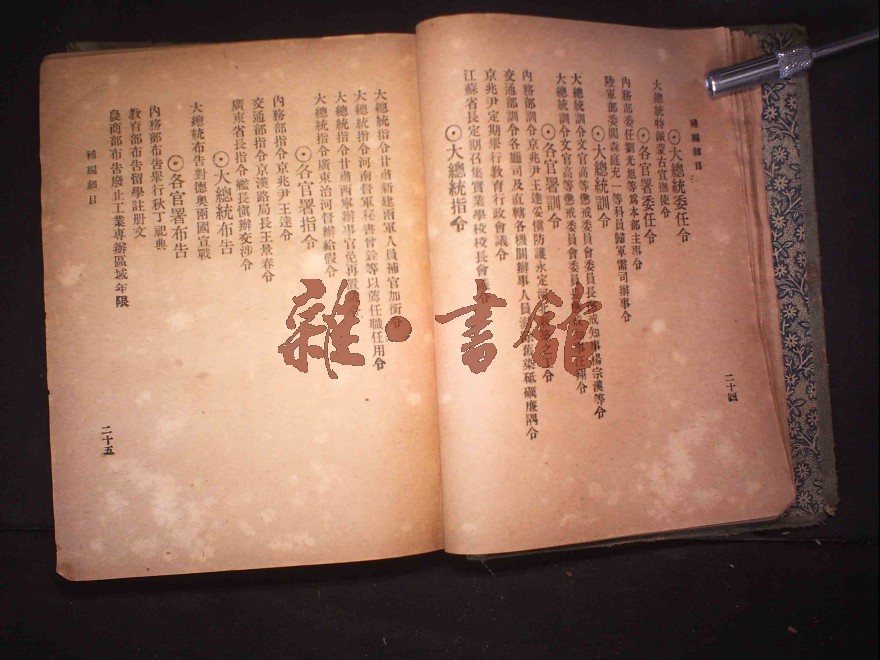 補編細目
⊙大總統委任令
大總統特派蒙古宣撫使令
⊙各官署委任令
內務部委任劉光旭等爲本部主事令
陸軍部委閻森庭充一等科員歸軍需司辦事令
⊙大總統訓令
大總統訓令文官高等懲戒委員會委員長 戒知事楊宗漢等令
大總統訓令文官高等懲戒委員會委員 令
⊙各官署訓令
內務部訓令京兆尹王達妥愼防護永定河 令
交通部訓令各廳司及直轄各機關辦事人員 舊染砥礪廉隅令
京兆尹定期舉行教育行政會議令
江蘇省長定期召集實業學校校長會 令
⊙大總統指令
二十四
大總統指令甘肅新建兩軍人員補官加銜令
大總統指令河南督軍秘書曾詮等以薦任職任用令
大總統指令甘肅西寧辦事官免再置
大總統指令廣東治河督辦給假令
⊙各官署指令
內務部指令京兆尹王達令
交通部指令京漢路局長王景春令
廣東省長指令艦長愼辦交涉令
⊙大總統布告
大總統布告對德奧兩國宣戰
⊙各官署布告
內務部布告舉行秋丁祀典
教育部布告留學註册文
農商部布告廢止工業專辦區域年限
補編細目
二十五
雜·書館